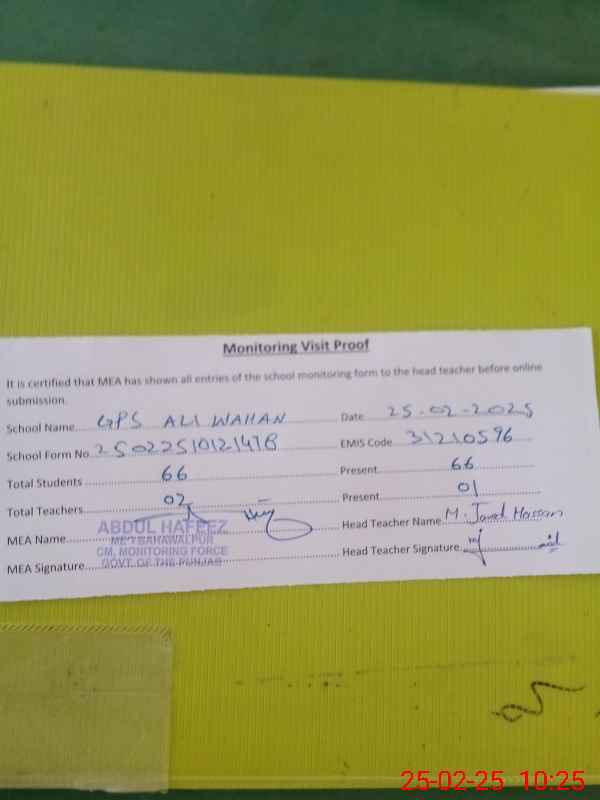 Monitoring Visit Proof
It is certified that MEA has shown all entries of the school monitoring form to the head teacher before online
submission.
School Name GPS ALI WAHAN Date 25-02-2025
School Form No 25022510121478 EMIS Code 31210596
Total Students 66 Present 66
Total Teachers 02 Present 01
MEA Name ABDUL HAFEEZ Head Teacher Name M. Javed Hassan
MEA BAHAWALPUR
CM, MONITORING FORCE
MEA Signature GOVT. OF THE PUNJAB Head Teacher Signature
25-02-25 10:25